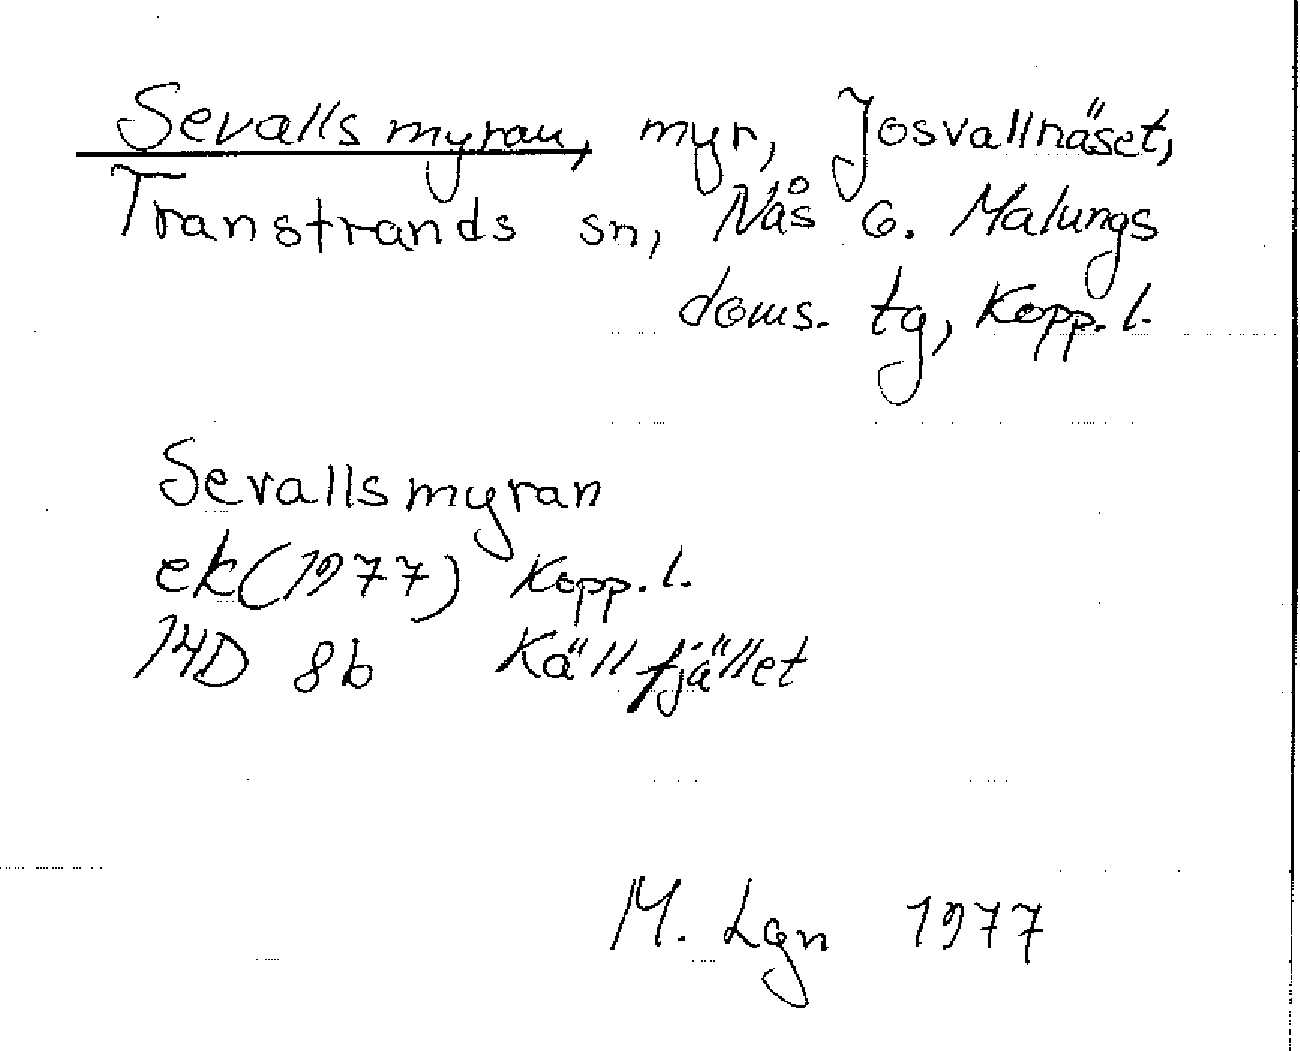 Sevallsmyran, myr, Josvallnäset,
Transtrands sn, Nås o. Malungs
doms. tg, Kopp. l.
Sevallsmyran
ek (1977) Kopp. l.
14D 8b Källfjället
M. Lgn 1977